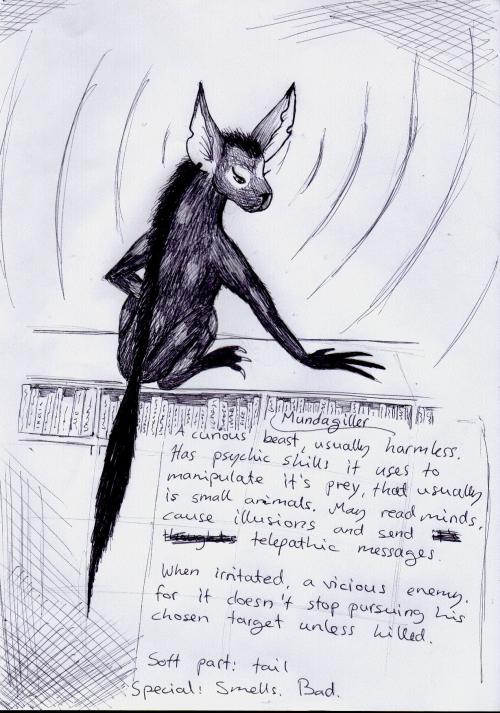 Mundagiller
A curious beast, usually harmless.
Has psychic skills it uses to
manipulate it's prey, that usually
is small animals. May read minds,
cause illusions and send
thoughts telepathic messages.
When irritated, a vicious enemy,
for it doesn't stop pursuing his
chosen target unless killed.
Soft part: tail
Special: Smells. Bad.